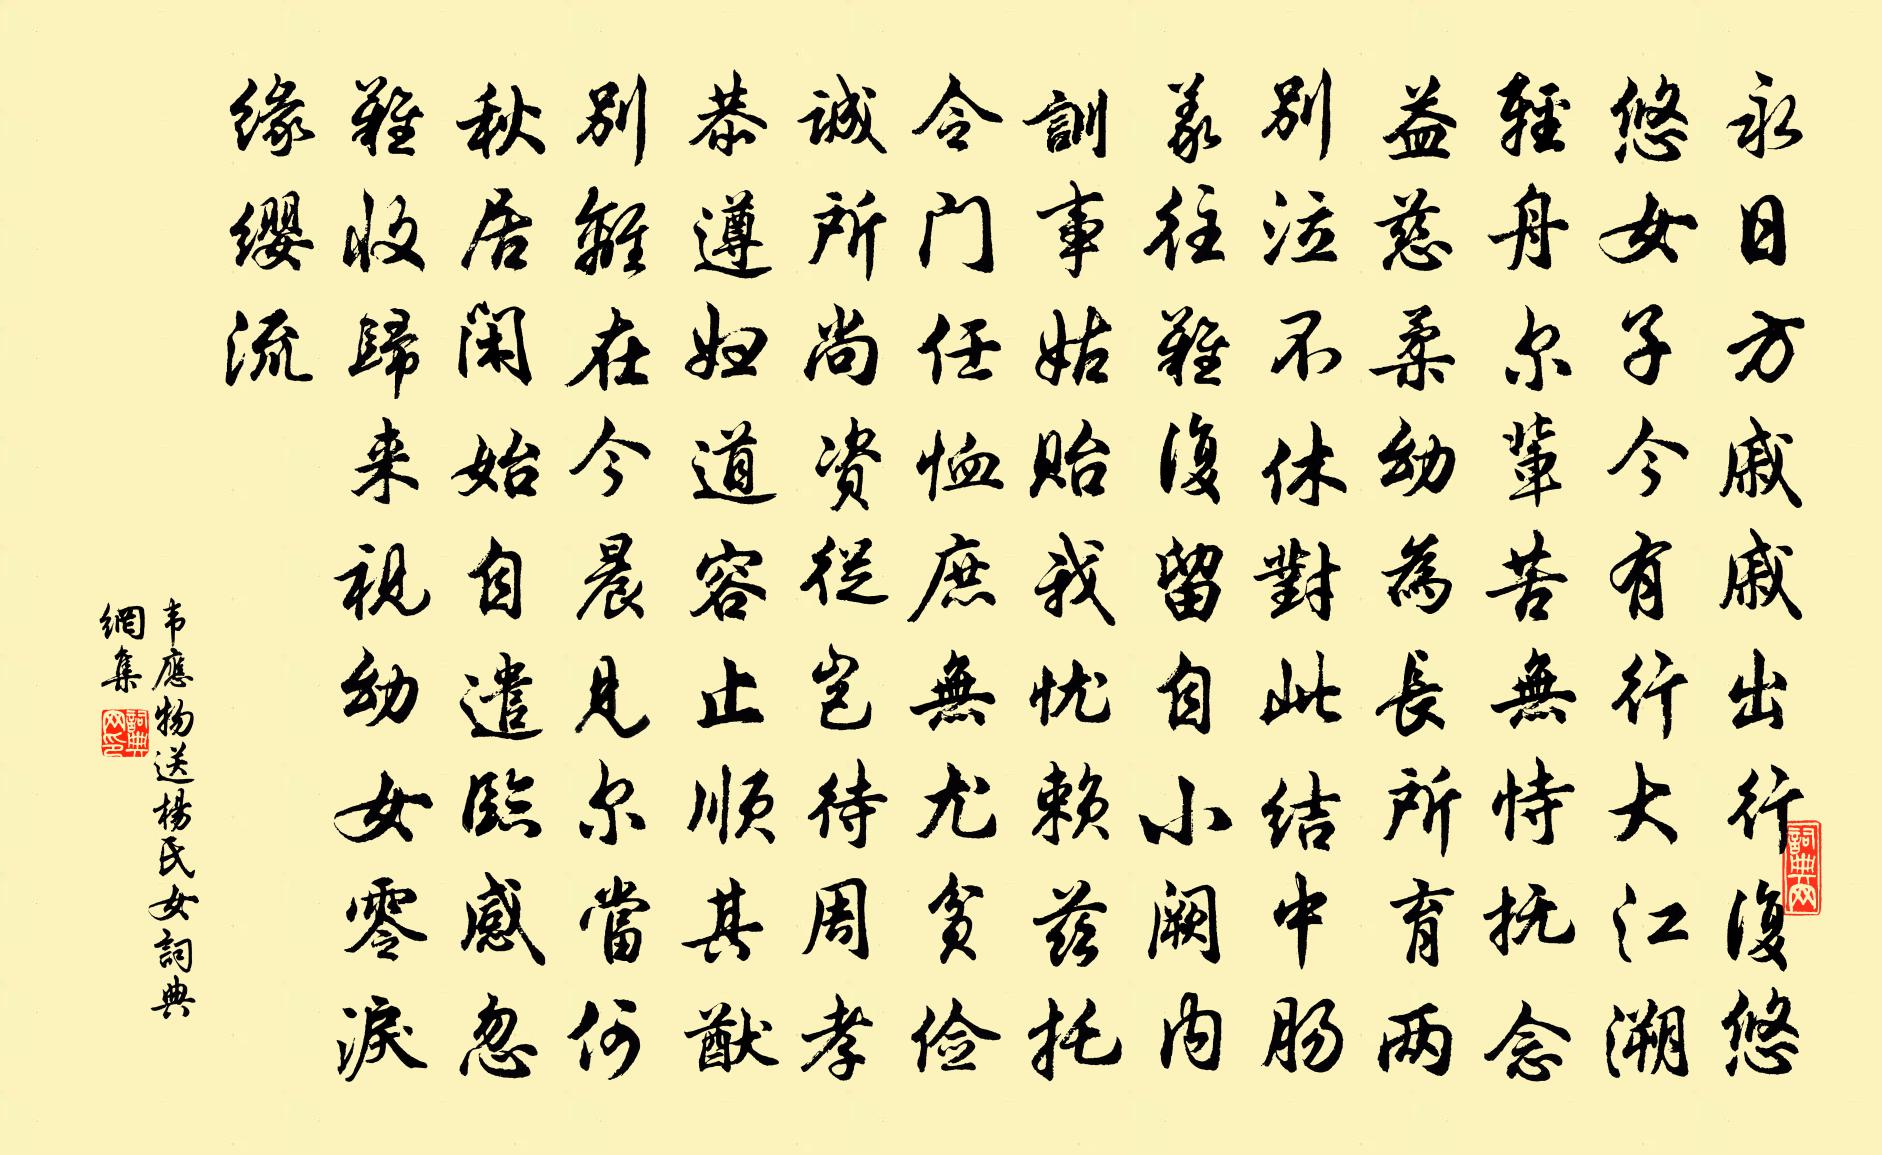 永日方戚戚出行復悠
悠女子今有行大江溯
輕舟尔輩苦無恃抚念
益慈柔幼為長所育两
別泣不休對此结中肠
義往難復留自小阙内
訓事姑贻我忧赖兹托
令门任恤庶無尤贫俭
诚所尚资從岂待周孝
恭遵妇道容止顺其猷
別離在今晨见尔當何
秋居闲始自遣臨感忽
難收歸来视幼女零淚
缘缨流
韦應物送楊氏女詞典
網集
詞典网
詞典网印